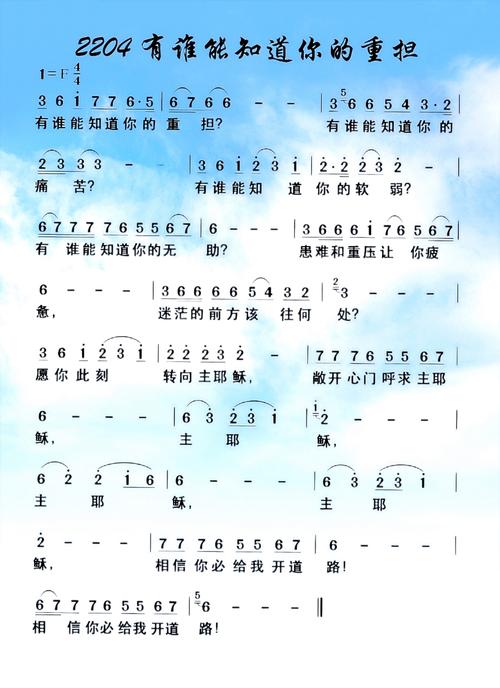 2204 有谁能知道你的重担
1=F 4/4
3 6 i 7 7 6·5 | 6 7 6 6 - - | 5 3 6 6 5 4 3·2 |
有谁能知道你的 重 担? 有谁能知道你的
2 3 3 3 - - | 3 6 i 2 3 i | 2·2 2 3 2 - - |
痛 苦? 有谁能知 道 你的软 弱?
6 7 7 7 7 6 5 5 6 7 | 6 - - - | 3 6 6 6 i 7 6 6 7 |
有 谁能知道你的无 助? 患难和重压让 你疲
6 - - - | 3 6 6 6 6 5 4 3 2 | 2 3 - - - |
惫, 迷茫的前方该 往何 处?
3 6 i 2 3 i | 2 2 2 2 - - | 7 7 7 7 6 5 5 6 7 |
愿你此刻 转向主耶稣, 敞开心门呼求主耶
6 - - - | 6 3 2 3 i | i 2 - - - |
稣, 主 耶 稣,
6 2 2 i 6 | 6 - - - | 6 3 2 3 i |
主 耶 稣, 主 耶
2 - - - | 7 7 7 6 5 5 6 7 | 6 - - - |
稣, 相信你必给我开道 路!
6 7 7 7 6 5 5 6 7 | 5 6 - - - ‖
相 信你必给我开道 路!